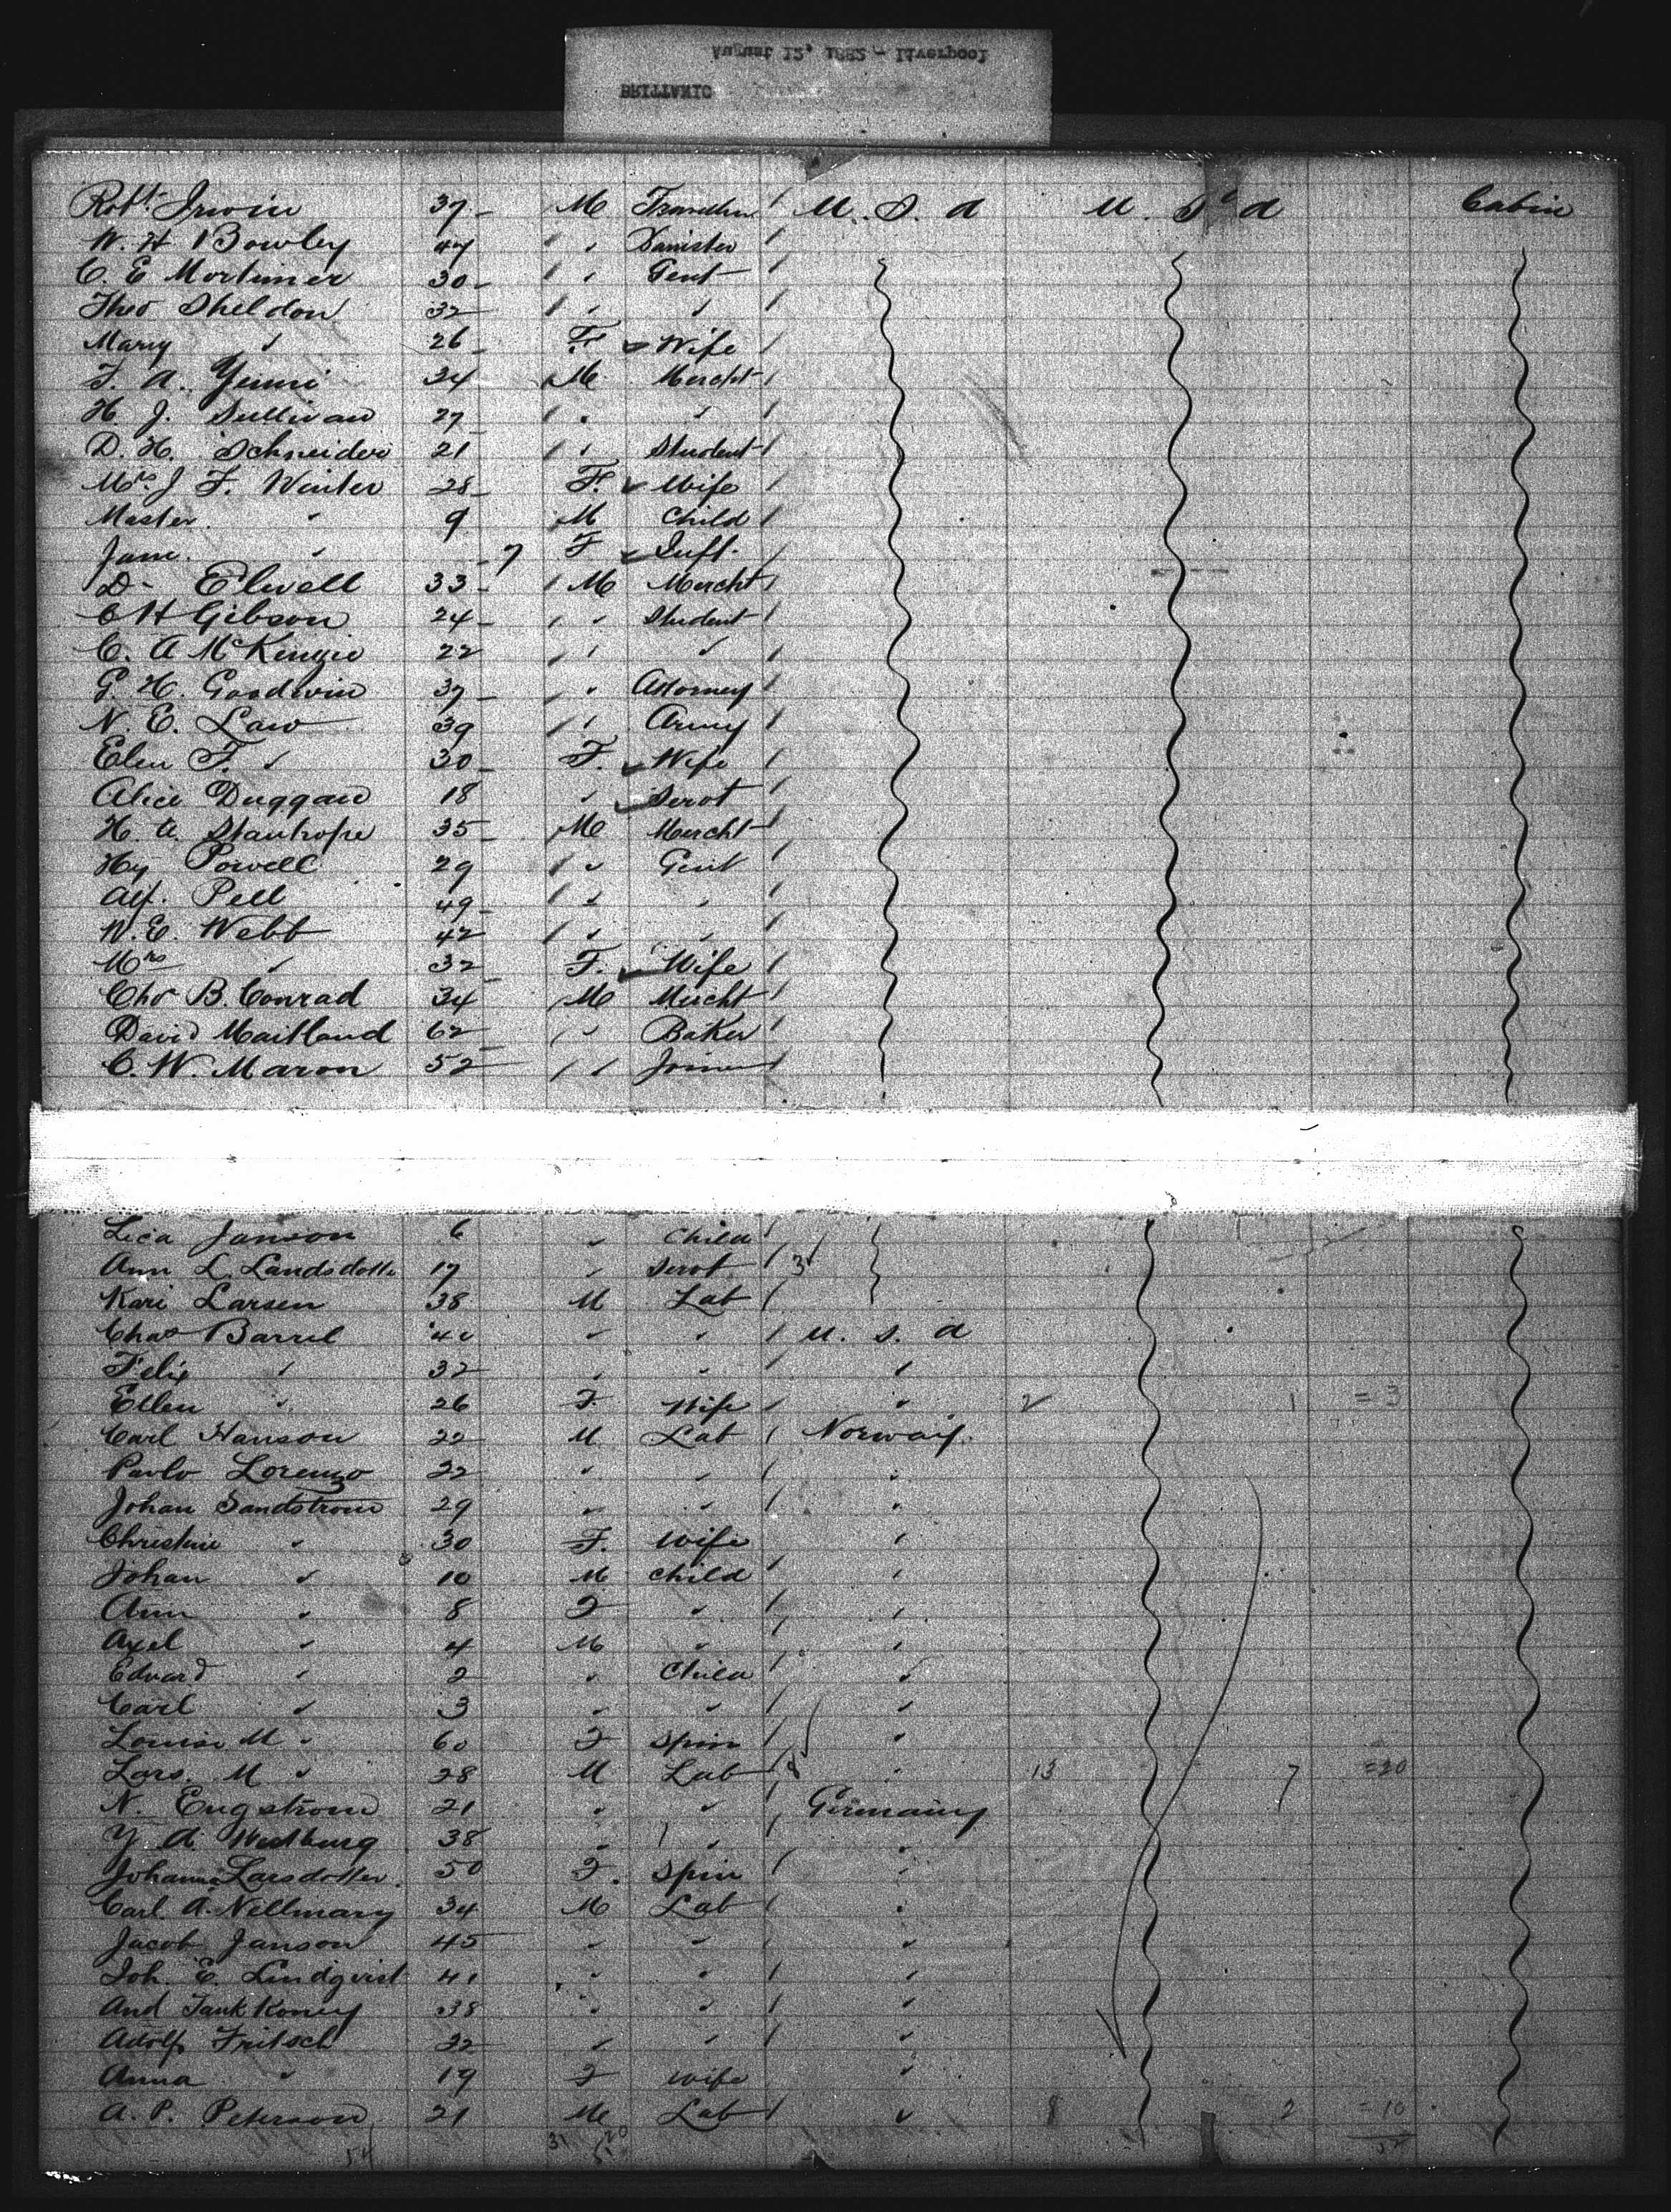 August 12, 1882 - Liverpool
BRITTANIC
Robt. Irwin 37 M U. S. A U. S. A Cabin
W. H Bowley 47 " "
C. E Mortimer 30 " Gent
Theo Sheldon 32 " "
Mary " 26 F. Wife
34 M Mercht
H. J. Sullivan 27 " "
D. H. Schneider 21 " Student
Mrs. J F. Winter 28 F. Wife
Master " 9 M Child
Jane " 7 F Inft.
D- Elwell 33 M Mercht
C H Gibson 24 " Student
C. A McKenzie 22 " "
G. H. Goodwin 37 " Attorney
N. E. Law 39 " Army
Elen F. " 30 F. Wife
Alice Duggan 18 " Servt
H. A. Stanhope 35 M Mercht
Hy Powell 29 " Gent
Alf. Pell 49 " "
W. E. Webb 42 " "
Mrs " 32 F. Wife
Chs B. Conrad 34 M Mercht
David Maitland 62 " Baker
C. W. Maron 52 " Joiner
Lica Janson 6 " Child
Ann L. Landsdotte 17 " Servt 3
Kari Larsen 38 M Lab
Chas Barrel 40 " " U. S. A
Felix " 32 " " "
Ellen " 26 F. Wife " 2 1 = 3
Carl Hanson 22 M Lab Norway.
Pavlo Lorenzo 22 " " "
Johan Sandstrom 29 " " "
Christine " 30 F. Wife "
Johan " 10 M Child "
Ann " 8 F " "
Axel " 4 M " "
Edvard " 2 " Child "
Carl " 3 " " "
Louisa M " 60 F Spin "
Lars. M " 28 M Lab " 13 7 =20
N. Engstrom 21 " " Germany
Y. A. Westburg 38 " " "
Johanna Larsdotter. 50 F. Spin "
Carl. A. Nellmary 34 M Lab "
Jacob Janson 45 " " "
Joh. E. Lindqvist 41 " " "
And Tankkoney 38 " " "
Adolf Fritsch 22 " " "
Anna " 19 F Wife "
A. P. Peterson 21 M Lab " 8 2 = 10
31 20